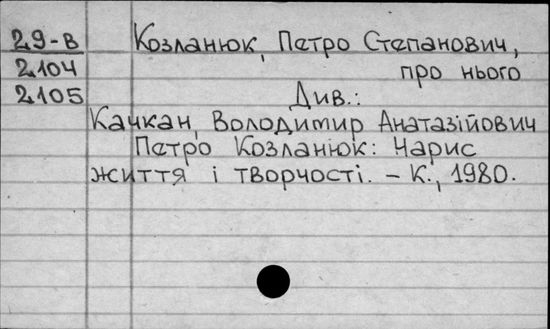 29-в Козланюк, Петро Степанович,
2104 про нього
2105 Див.:
Качкан, Володимир Анатазійович
Петро Козланюк: Нарис
життя і творчості. – К., 1980.